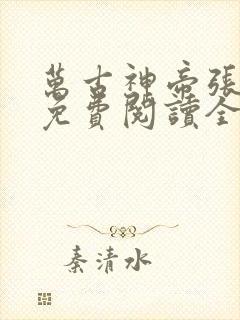 萬古神帝張
免費閱讀全
秦清水